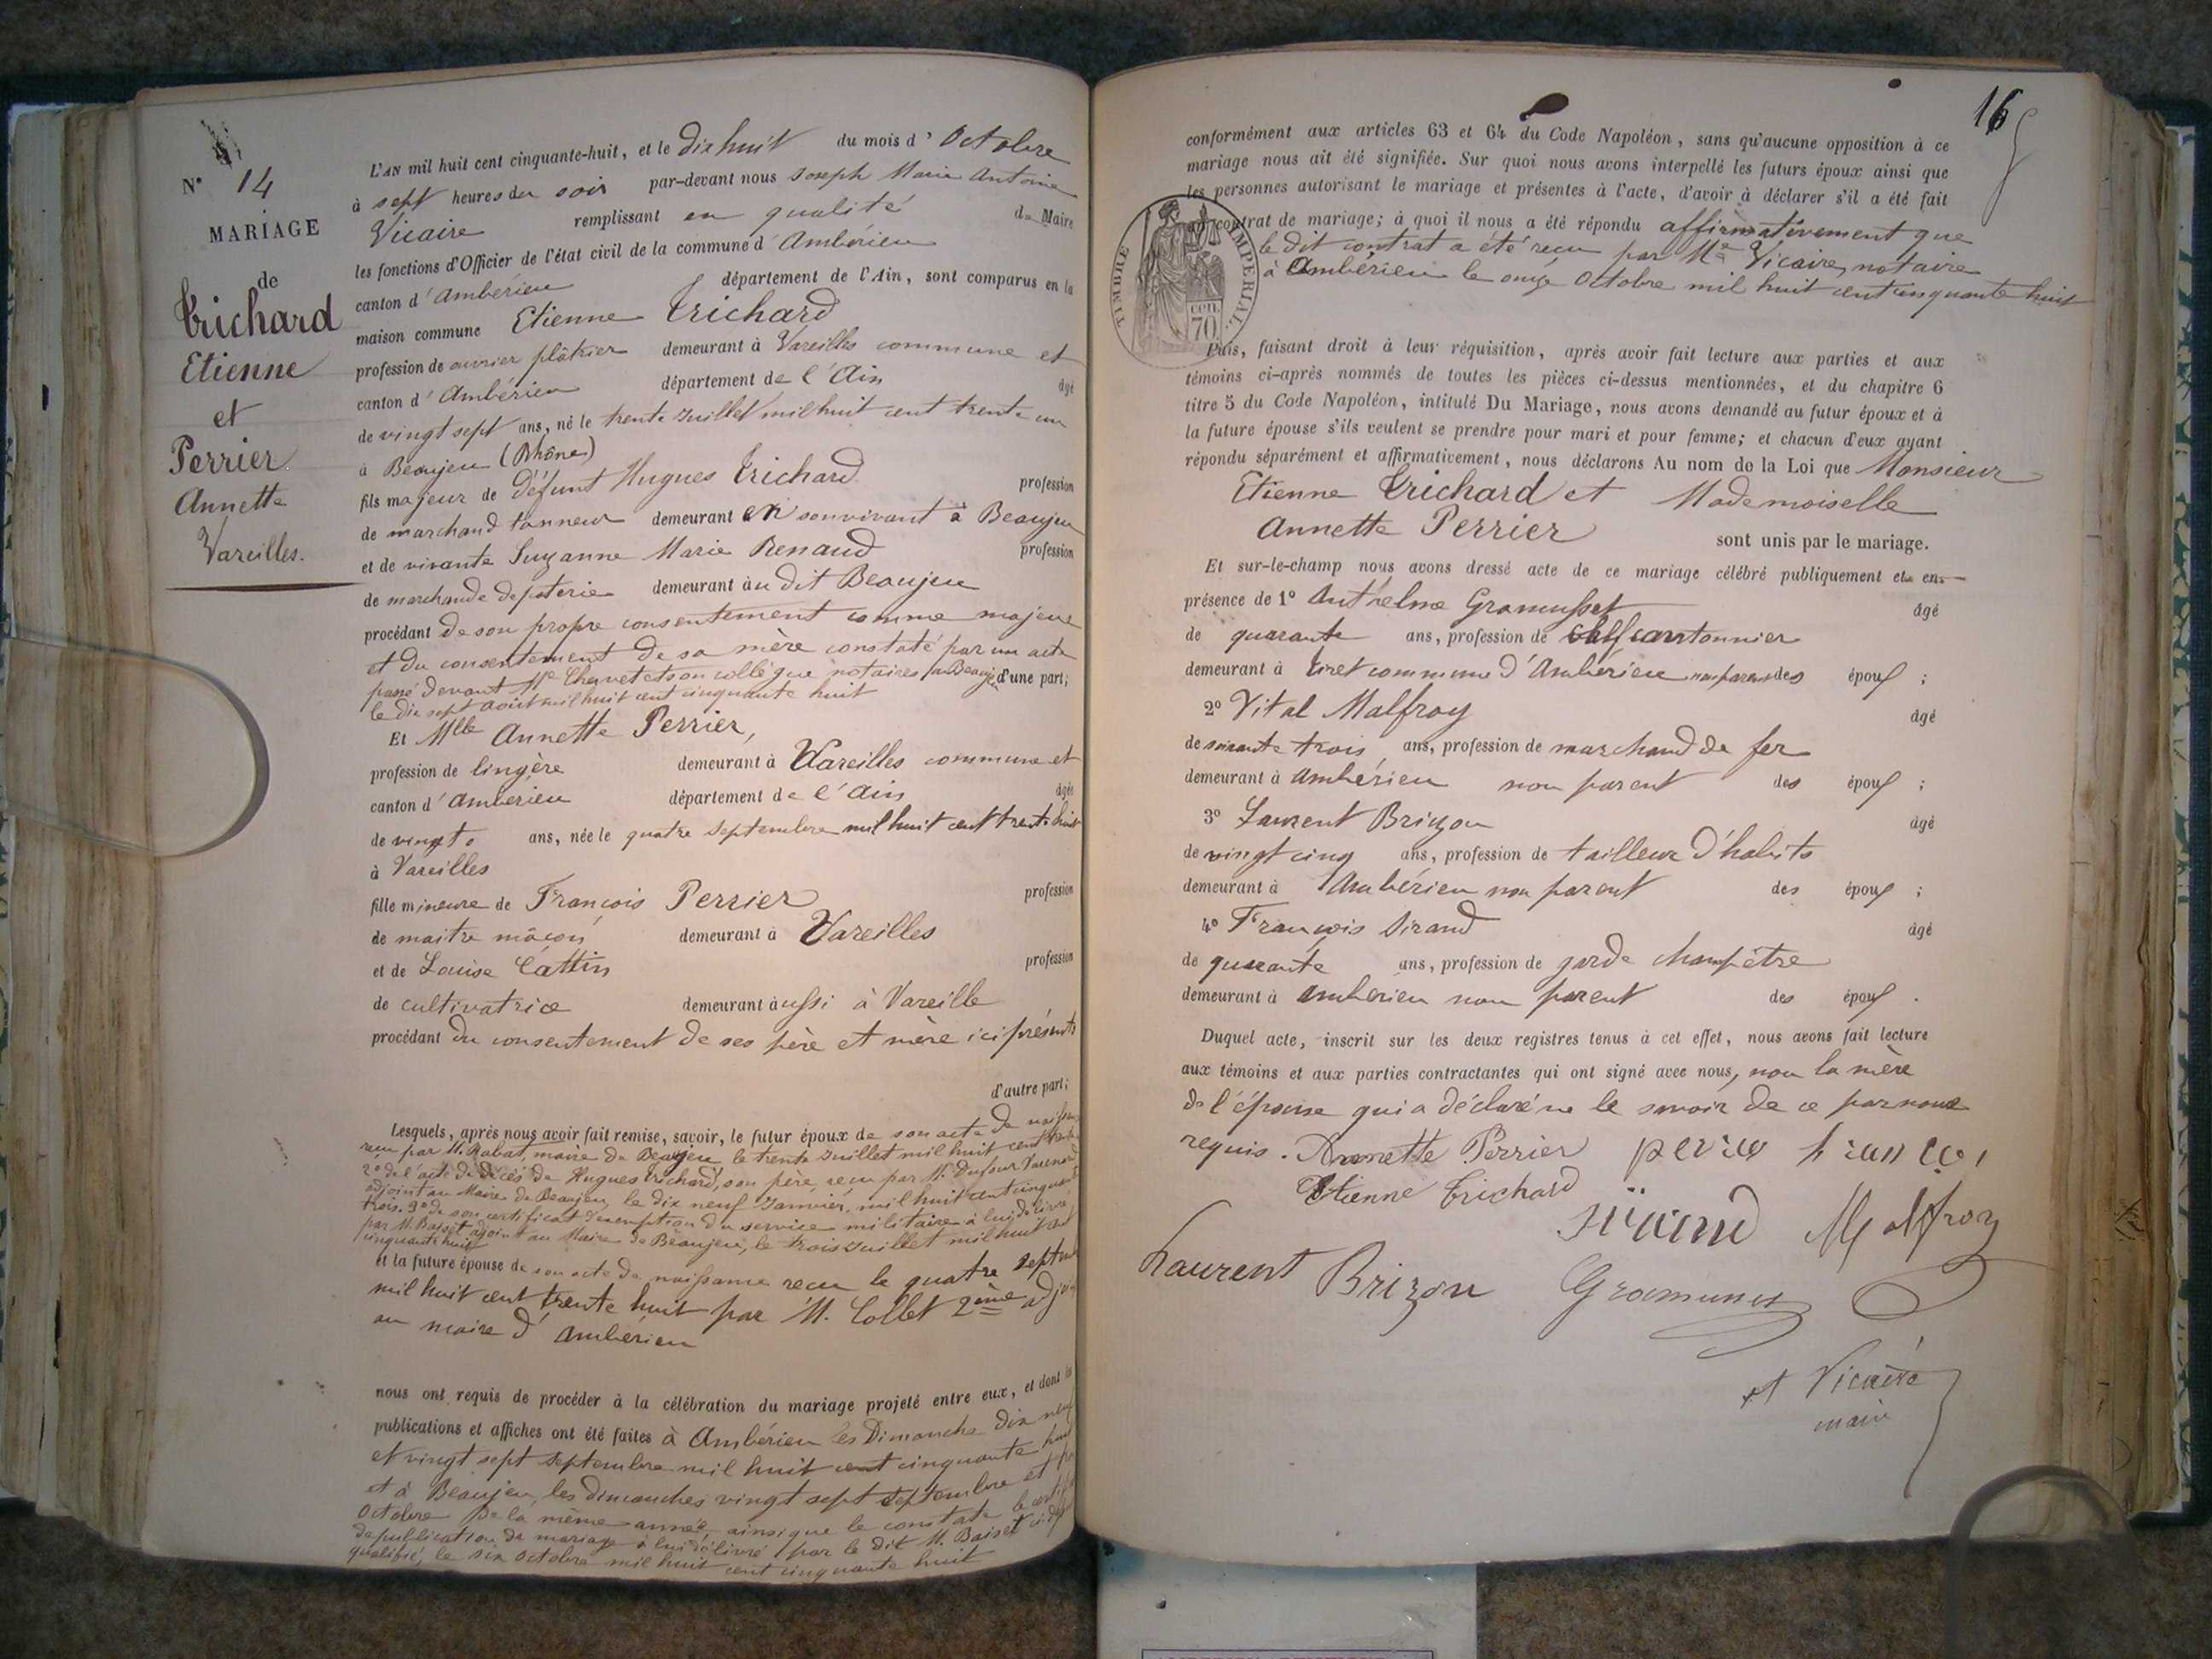 N° 14
MARIAGE
de
Trichard
Etienne
et
Perrier
Annette
Vareilles.
L'AN mil huit cent cinquante-huit, et le dix huit du mois d' Octobre
à sept heures du soir par-devant nous Joseph Marie Antoine
Vicaire remplissant en qualité de Maire
les fonctions d'Officier de l'état civil de la commune d' Ambérieu
canton d' Ambérieu département de l'Ain, sont comparus en la
maison commune Etienne Trichard
profession de ouvrier plâtrier demeurant à Vareilles commune et
canton d' Ambérieu département de l'Ain âgé
de vingt sept ans, né le trente Juillet mil huit cent trente un
à Beaujeu (Rhône)
fils majeur de défunt Hugues Trichard profession
de marchand tanneur demeurant en son vivant à Beaujeu
et de vivante Suzanne Marie Renaud profession
de marchande de poterie demeurant au dit Beaujeu
procédant de son propre consentement comme majeur
et du consentement de sa mère constaté par un acte
passé devant Me et son collègue notaires à Beaujeu d'une part;
le dix sept août mil huit cent cinquante huit
Et Mlle Annette Perrier,
profession de lingère demeurant à Vareilles commune et
canton d' Ambérieu département de l'Ain âgée
de vingt ans, née le quatre Septembre mil huit cent trente huit
à Vareilles
fille mineure de François Perrier profession
de maitre mâçon demeurant à Vareilles
et de Louise Cattin profession
de cultivatrice demeurant aussi à Vareille
procédant du consentement de ses père et mère ici présents
d'autre part;
Lesquels, après nous avoir fait remise, savoir, le futur époux de son acte de naissance
reçu par M. Rabat, maire de Beaujeu le trente Juillet mil huit cent trente
2° de l'acte de décès de Hugues Trichard, son père, reçu par M. Dufour
adjoint au Maire de Beaujeu, le dix neuf Janvier, mil huit cent cinquante
trois. 3° de son certificat d'exemption du service militaire à lui délivré
par M. Baiset adjoint au Maire de Beaujeu, le trois Juillet mil huit cent
cinquante huit
et la future épouse de son acte de naissance reçu le quatre Septembre
mil huit cent trente huit par M. Collet 2ème adjoint
au maire d' Ambérieu
nous ont requis de procéder à la célébration du mariage projeté entre eux, et dont les
publications et affiches ont été faites à Ambérieu les Dimanche dix neuf
et vingt sept Septembre mil huit cent cinquante huit
et à Beaujeu, les dimanches vingt sept Septembre et
Octobre de la même année, ainsi que le constate le certificat
de publication de mariage à lui délivré par le dit M. Baiset
qualifié, le six Octobre mil huit cent cinquante huit
16
conformément aux articles 63 et 64 du Code Napoléon, sans qu'aucune opposition à ce
mariage nous ait été signifiée. Sur quoi nous avons interpellé les futurs époux ainsi que
les personnes autorisant le mariage et présentes à l'acte, d'avoir à déclarer s'il a été fait
un contrat de mariage; à quoi il nous a été répondu affirmativement que
le dit contrat a été reçu par Me Vicaire, notaire
à Ambérieu le onze Octobre mil huit cent cinquante huit
TIMBRE IMPERIAL
CEN. 70
Puis, faisant droit à leur réquisition, après avoir fait lecture aux parties et aux
témoins ci-après nommés de toutes les pièces ci-dessus mentionnées, et du chapitre 6
titre 5 du Code Napoléon, intitulé Du Mariage, nous avons demandé au futur époux et à
la future épouse s'ils veulent se prendre pour mari et pour femme; et chacun d'eux ayant
répondu séparément et affirmativement, nous déclarons Au nom de la Loi que Monsieur
Etienne Trichard et Mademoiselle
Annette Perrier sont unis par le mariage.
Et sur-le-champ nous avons dressé acte de ce mariage célébré publiquement et en
présence de 1° Anthelme Gramusset âgé
de quarante ans, profession de chef cantonnier
demeurant à Tiret commune d'Ambérieu non parent des époux ;
2° Vital Malfroy âgé
de soixante trois ans, profession de marchand de fer
demeurant à Ambérieu non parent des époux ;
3° Laurent Brizon âgé
de vingt cinq ans, profession de tailleur d'habits
demeurant à Ambérieu non parent des époux ;
4° François Sirand âgé
de quarante ans, profession de garde champêtre
demeurant à Ambérieu non parent des époux .
Duquel acte, inscrit sur les deux registres tenus à cet effet, nous avons fait lecture
aux témoins et aux parties contractantes qui ont signé avec nous, non la mère
de l'épouse qui a déclaré ne le savoir de ce par nous
requis. Annette Perrier
Etienne Trichard
Sirand Malfroy
Laurent Brizon Gramusset
Vicaire
maire